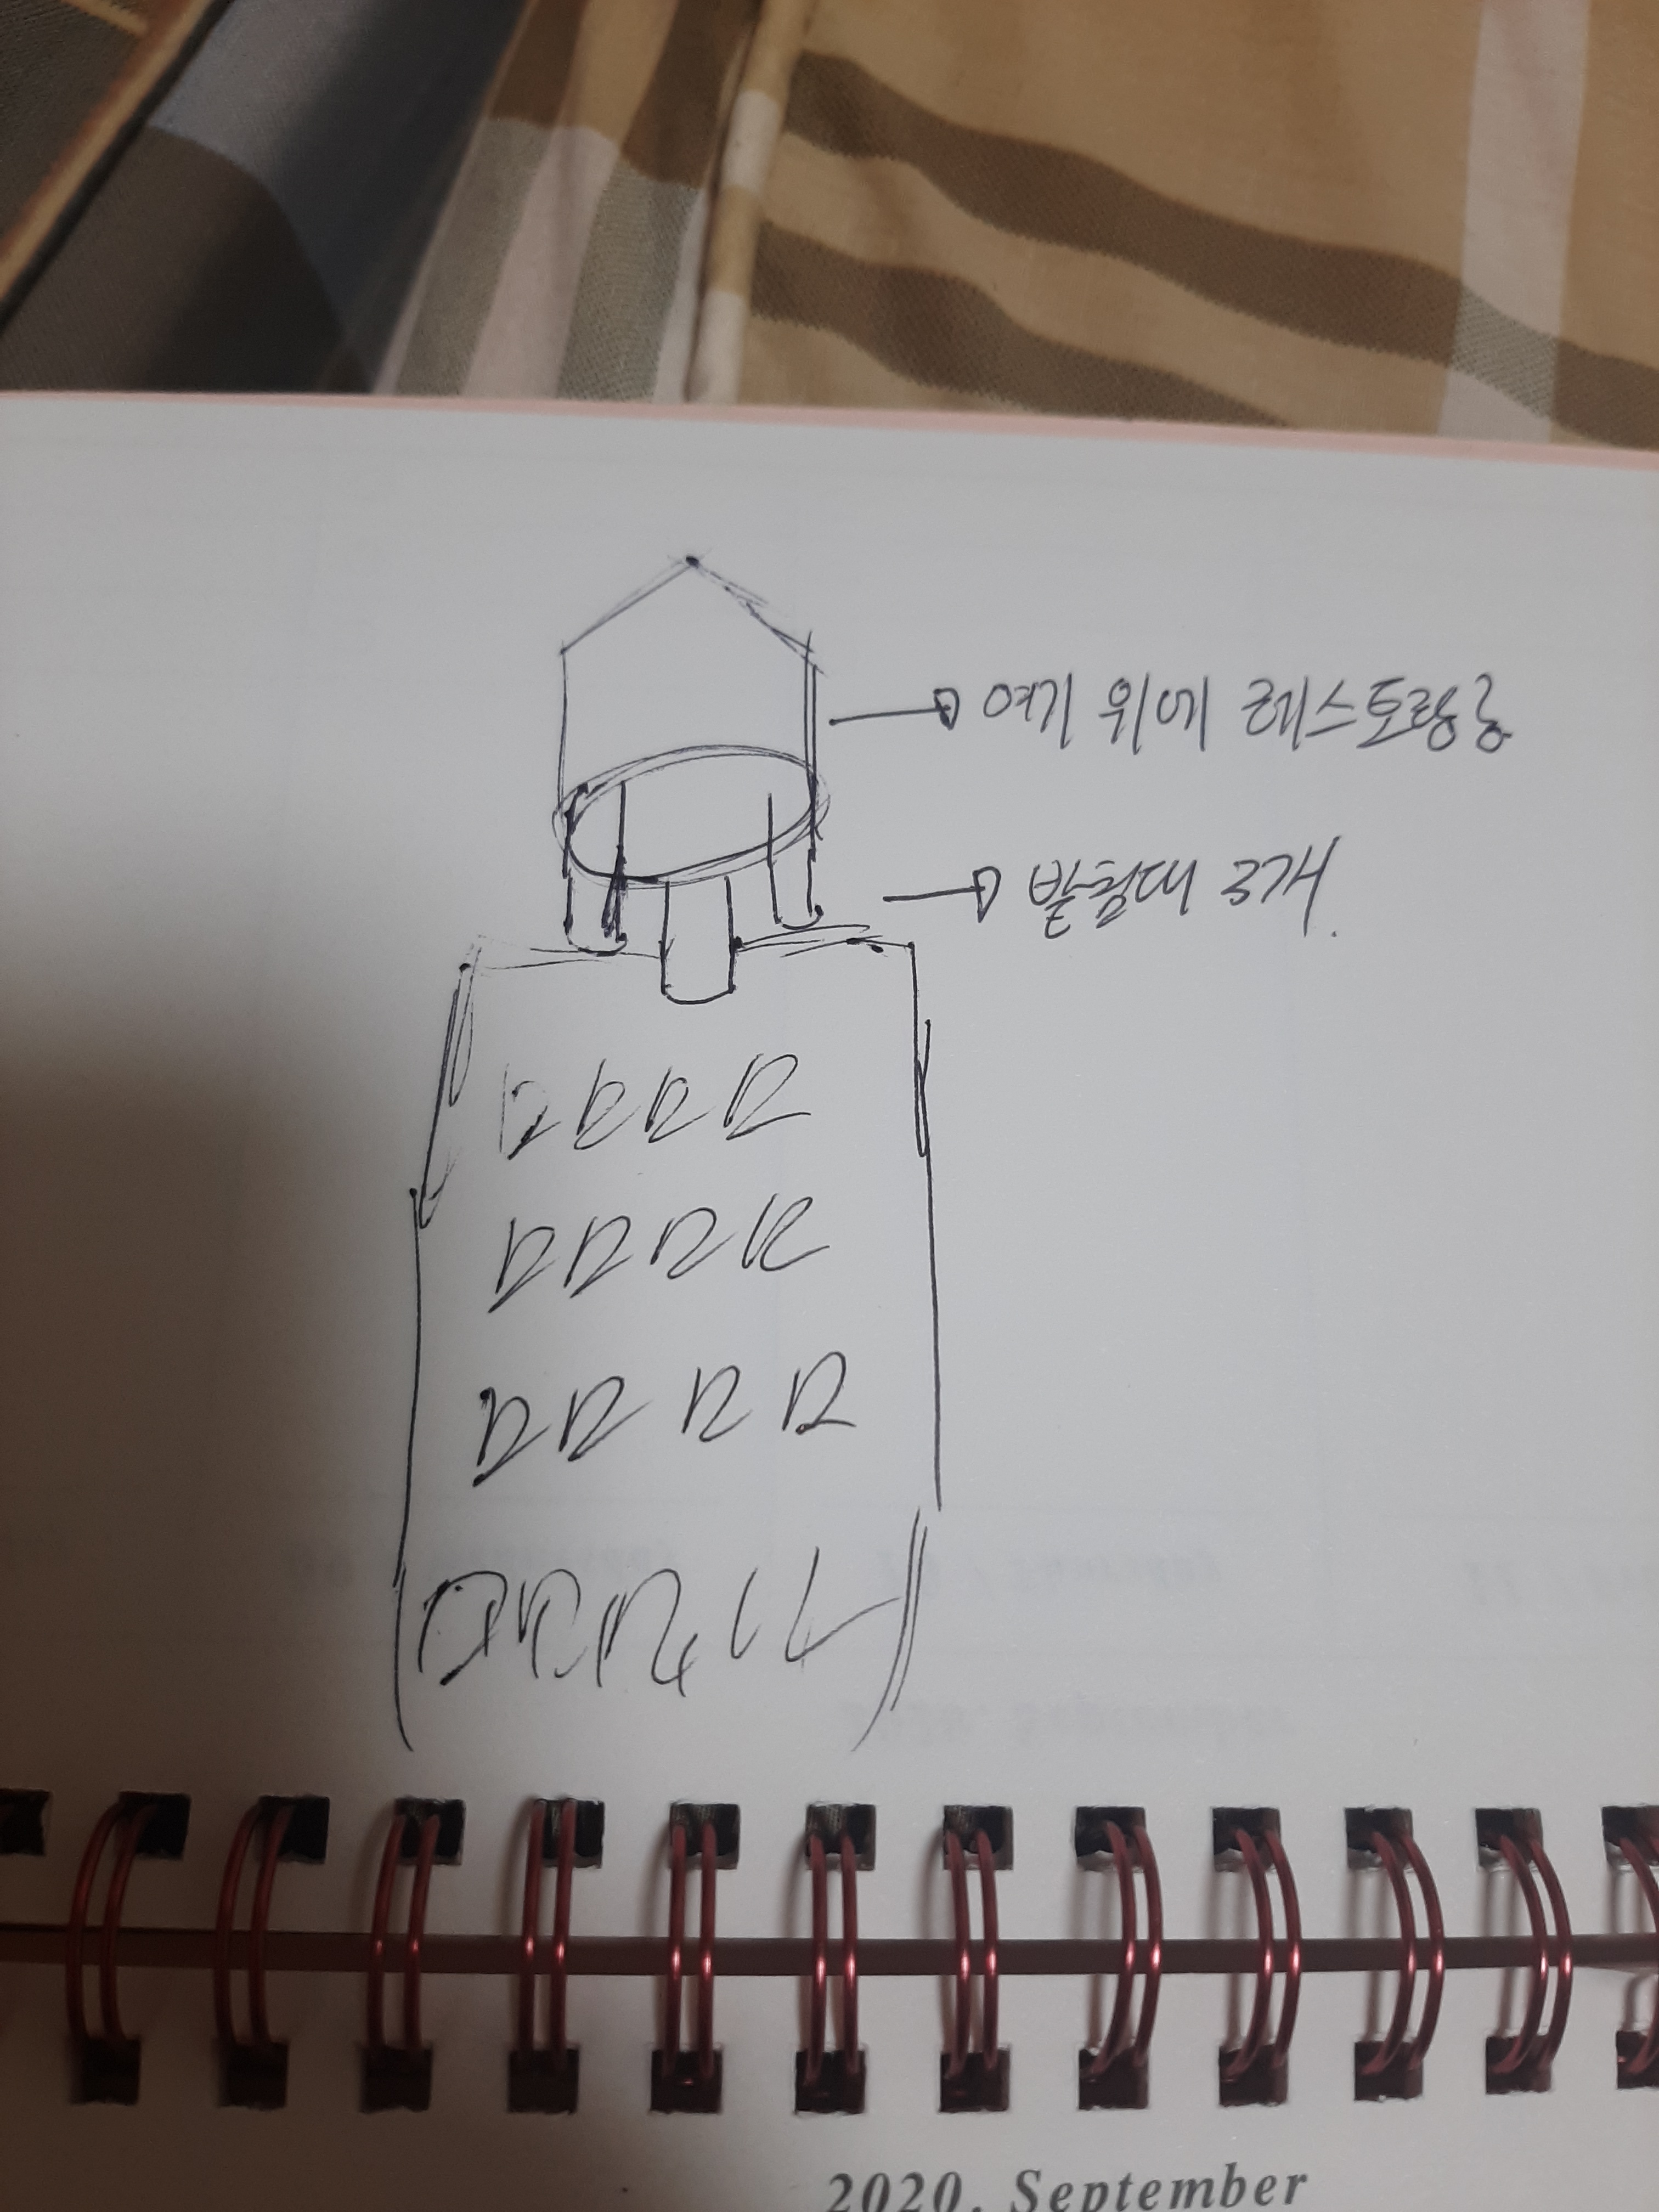 여기 위에 레스토랑?
받침대 3개.
2020. September